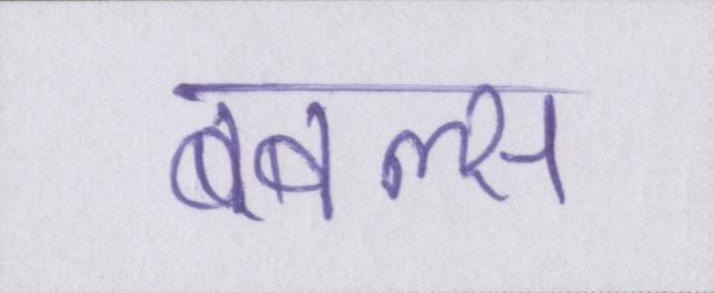 बबल्स